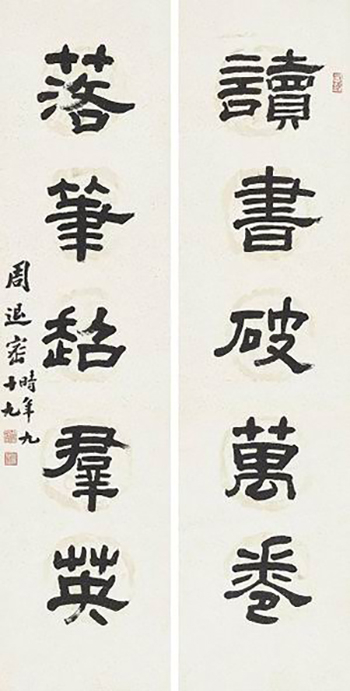 讀書破萬卷
落筆超羣英
周退密時年九十九